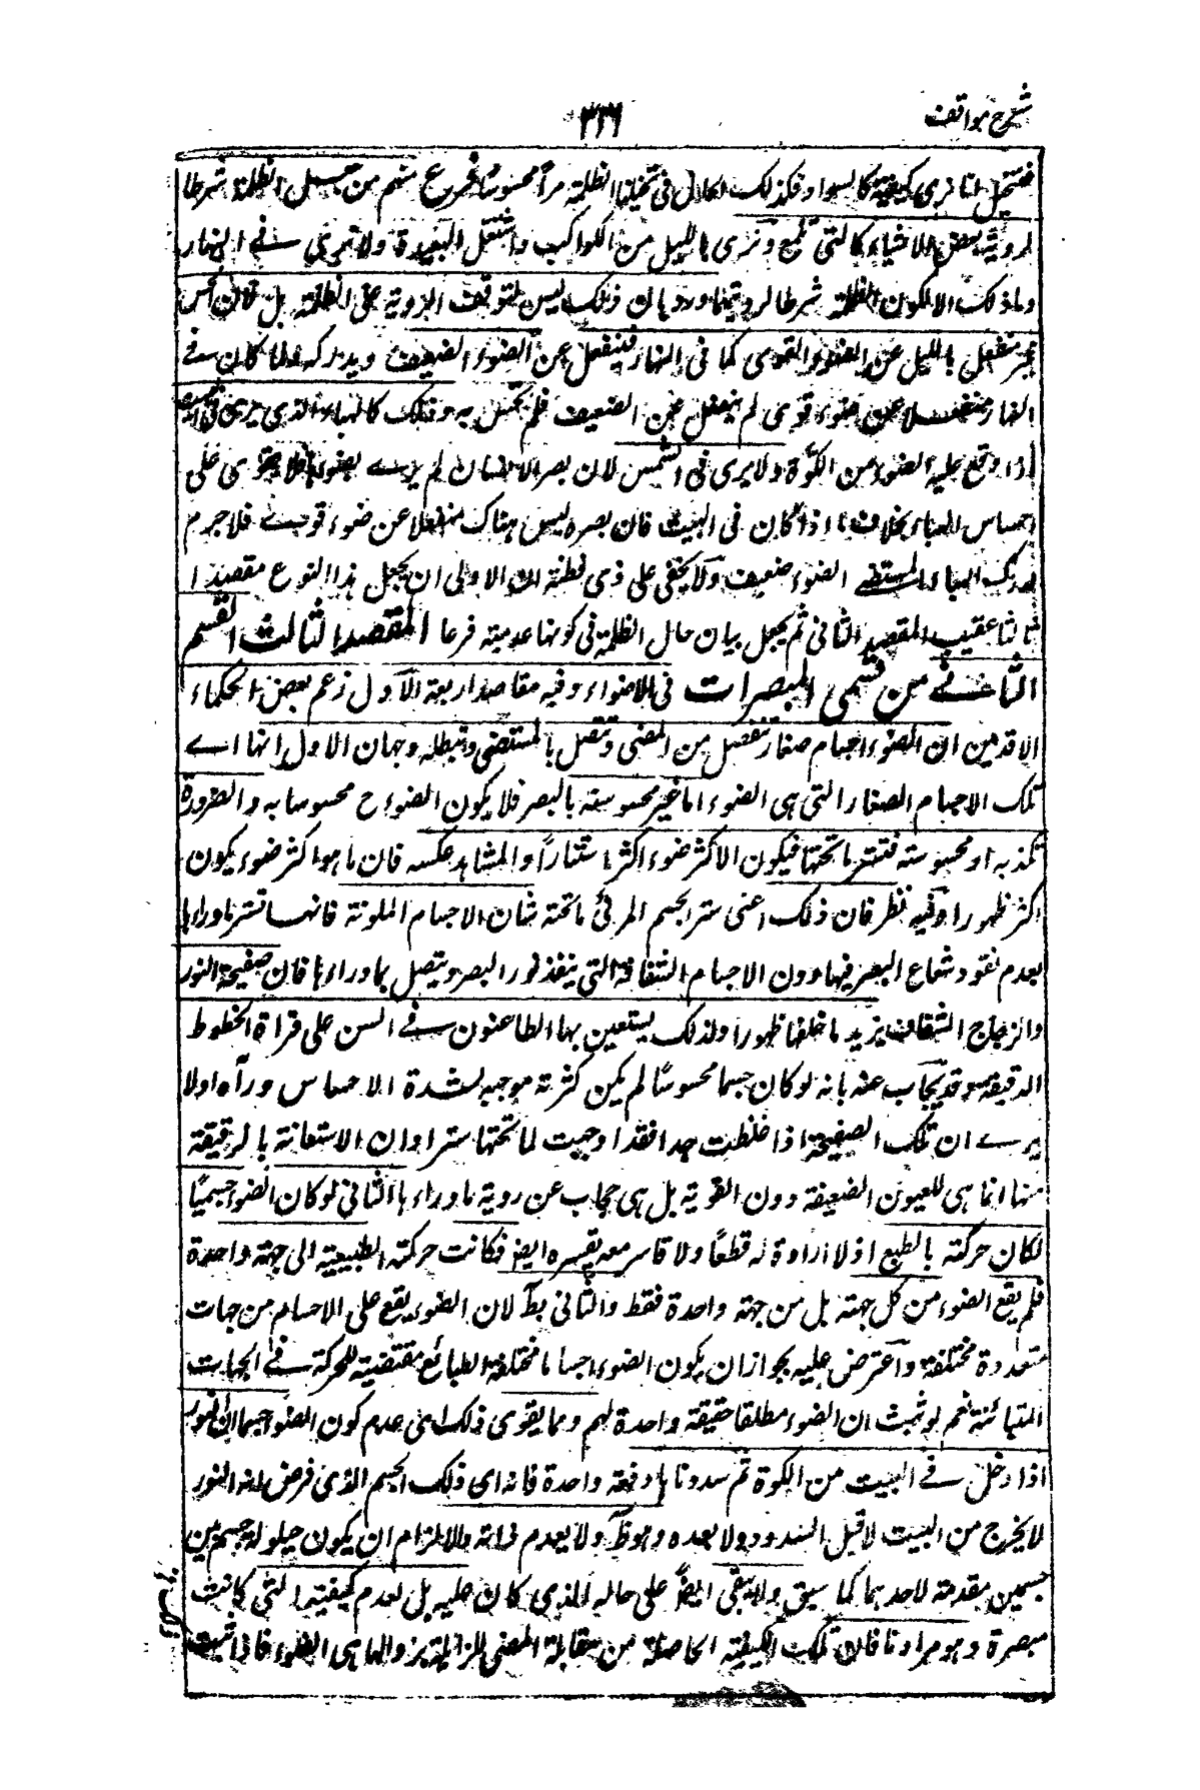 شرح مواقف
٣٣٦
فنتخيل انا نرى كيفية كالسواد فكذلك الحال فى تخيلنا الظلمة امرا محسوسا فرع منهم من جعل الظلمة شرطا
لروية بعض الاشياء كالتى تلمع وترى بالليل من الكواكب والشعل البعيدة ولا ترى فى النهار
وما ذلك الا لكون الظلمة شرطا لرويتها ورد بان ذلك ليس لتوقف الروية على الظلمة بل لان الحس
غير منفعل بالليل عن الضوء القوى كما فى النهار فينفعل عن الضوء الضعيف ويدركه ولما كان فى
النهار منفعلا عن ضوء قوى لم ينفعل عن الضعيف فلم يحس به وذلك كالهباء الذى يرى فى البيت
اذا وقع عليه الضوء من الكوة ولا يرى فى الشمس لان بصر الانسان لم يرے بضوئها فلا يقوى على
احساس الهباء بخلاف ما اذا كان فى البيت فان بصره ليس هناك منفعلا عن ضوء قوے فلا جرم
ادرك الهباء المستضے الضوء ضعيف ولا يخفى على ذى فطنة ان الاولى ان يجعل هذا النوع مقصدا
ثالثا عقيب المقصد الثانى ثم يجعل بيان حال الظلمة فى كونها عدمية فرعا المقصد الثالث القسم
الثانے من قسمى المبصرات فى الاضواء وفيه مقاصد اربعة الاول زعم بعض الحكماء
الاقدمين ان الضوء اجسام صغار تنفصل من المضى وتتصل بالمستضى ويبطله وجهان الاول انها اے
تلك الاجسام الصغار التى هى الضوء اما غير محسوسة بالبصر فلا يكون الضوء ح محسوسا به والضرورة
تكذبه او محسوسة فتستر ما تحتها فيكون الاكثر ضوءا اكثر استتارا والمشاهد عكسه فان ما هو اكثر ضوء يكون
اكثر ظهورا وفيه نظر فان ذلك اعنى ستر الجسم المرئى ما تحته شان الاجسام الملونة فانها تستر ما وراءها
لعدم نفوذ شعاع البصر فيها دون الاجسام الشفافة التى ينفذ نور البصر ويتصل بما وراءها فان صفيحة البلور
والزجاج الشفاف يزيد ما خلفها ظهورا ولذلك يستعين بها الطاعنون فے السن على قراة الخطوط
الدقيقة وقد يجاب عنه بانه لو كان جسما محسوسا لم يكن كثرته موجبة لشدة الاحساس ورآه اولا
يرے ان تلك الصفيحة اذا غلظت جدا فقد اوجبت لما تحتها سترا وان الاستعانة بالرقيقة
منها انما هى للعيون الضعيفة دون القوية بل هى حجاب عن روية ما وراءها الثانى لو كان الضوء جسما
لكان حركته بالطبع اذ لا ارادة له قطعا ولا قاسر معه يقسره ايض فكانت حركته الطبيعية الى جهة واحدة
فلم يقع الضوء من كل جهة بل من جهة واحدة فقط والثانى بط لان الضوء يقع على الاجسام من جهات
متعددة مختلفة واعترض عليه بجواز ان يكون الضوء اجساما مختلفة الطبائع مقتضية للحركة فے الجهات
المتبائنة نعم لو ثبت ان الضوء مطلقا حقيقة واحدة لهم ومما يقوى ذلك اى عدم كون الضوء جسما ان النور
اذا دخل فے البيت من الكوة ثم سددناها دفعة واحدة فانه اى ذلك الجسم الذى فرض انه النور
لا يخرج من البيت لا قبل السد ولا بعده وهو ظ ولا يعدم ذاته والا لزم ان يكون حيلولة جسم بين
جسمين مقدمة لاحدهما كما سبق ولا يبقى ايض على حاله الذى كان عليه بل لعدم كيفيته التى كانت
مبصرة وهو مرادنا فان تلك الكيفية الحاصلة من مقابلة المضى الزائلة بزوالها هى الضوء فاذا ثبت